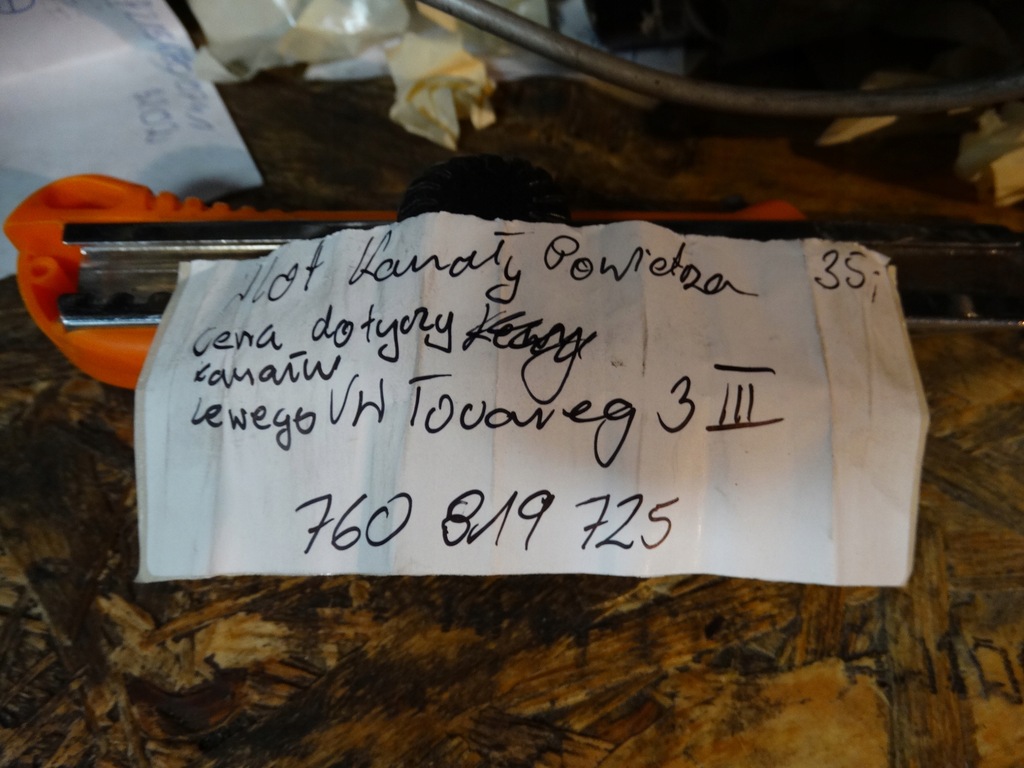 Wlot Kanały Powietrza 35,-
cena dotyczy
kanału
Lewego VW Touareg 3 III
760 819 725